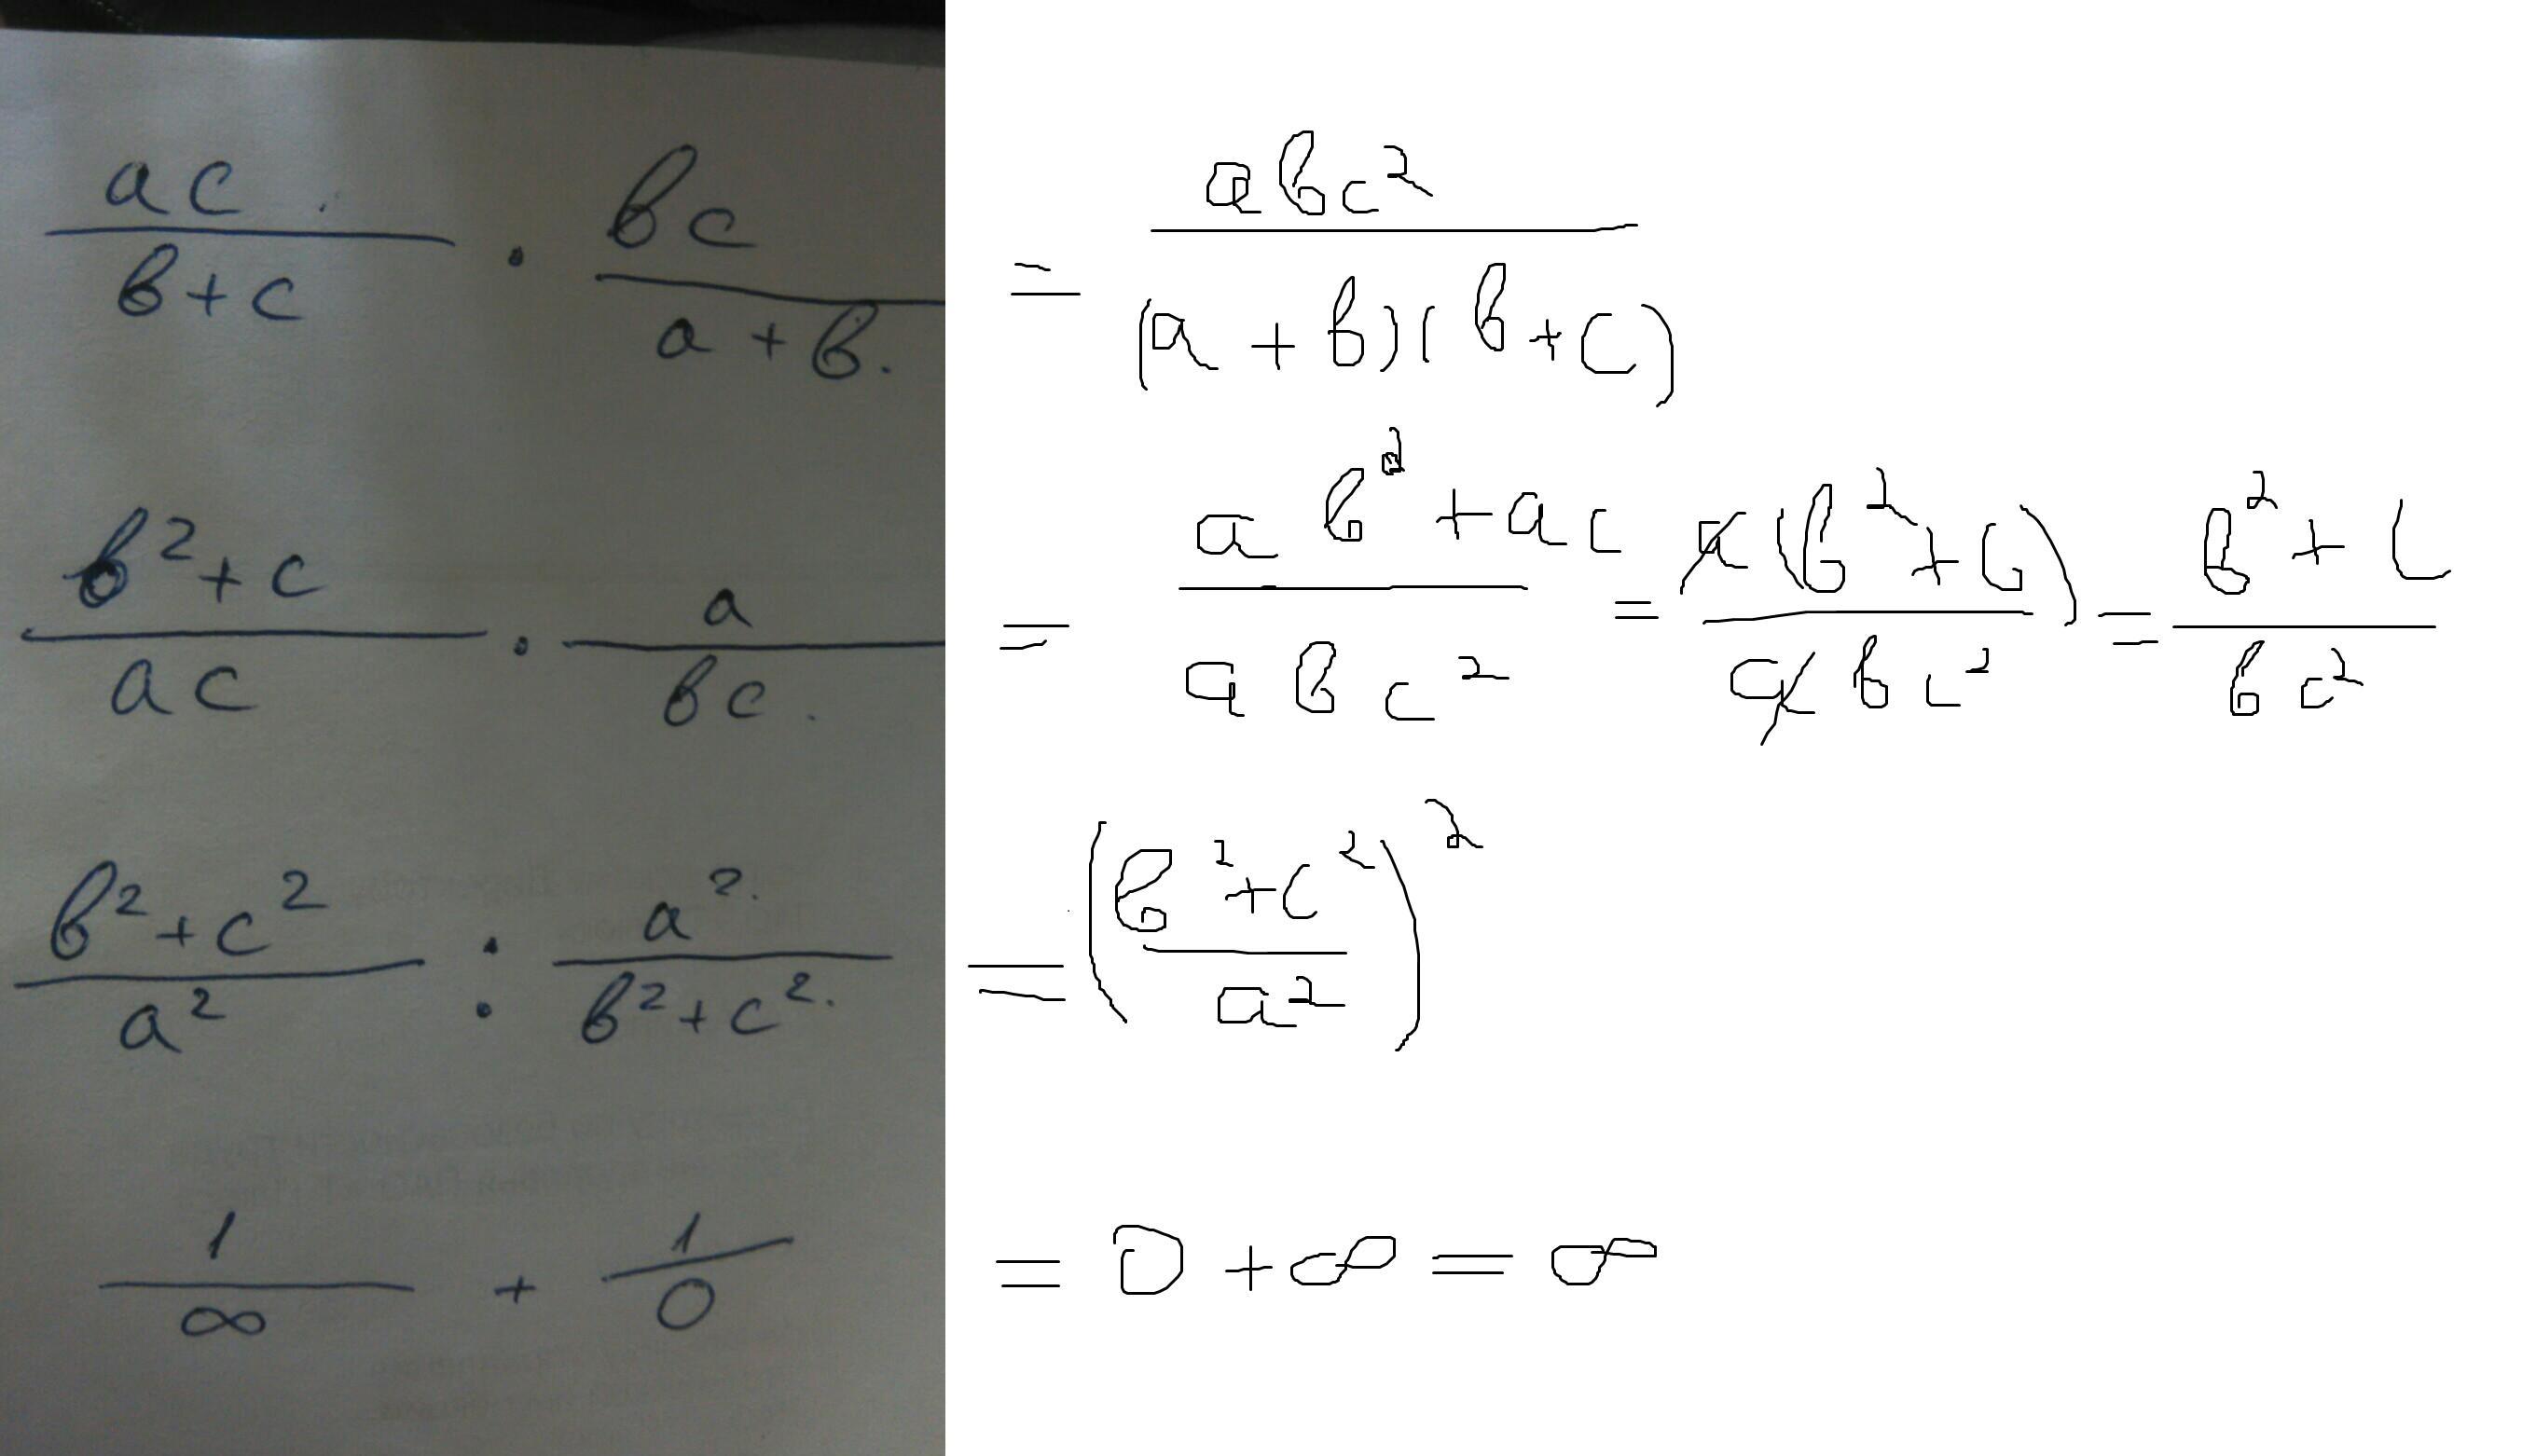 ac/(b+c) · bc/(a+b). = abc²/((a+b)(b+c))
(b²+c)/(ac) · a/(bc). = (ab²+ac)/(abc²) = a(b²+c)/(abc²) = (b²+c)/(bc²)
(b²+c²)/a² : a²/(b²+c²). = ((b²+c²)/a²)²
1/∞ + 1/0 = 0 + ∞ = ∞